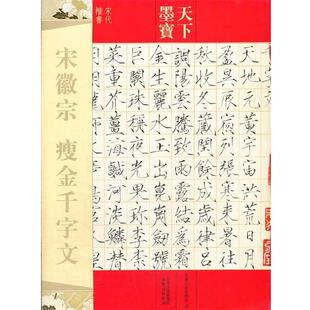 宋代
楷書
天下
墨寶
宋徽宗 瘦金千字文
天地元黃宇宙洪荒日月
盈昃辰宿列張寒來暑往
秋收冬藏閏餘成歲律呂
調陽雲騰致雨露結為霜
金生麗水玉出崑岡劍號
巨闕珠稱夜光果珍李柰
菜重芥薑海鹹河淡鱗潛